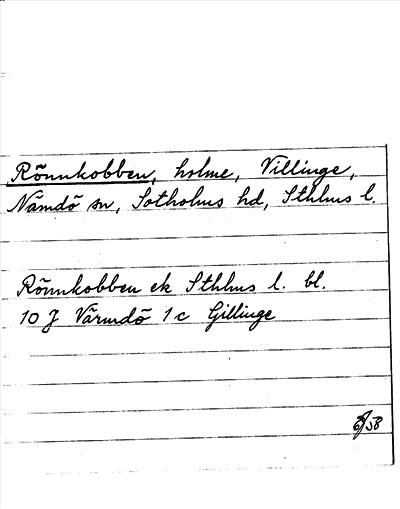 Rönnkobben, holme, Villinge,
Nämdö sn, Sotholms hd, Sthlms l.
Rönnkobben ek Sthlms l. bl.
10 J Värmdö 1c Gillinge
58